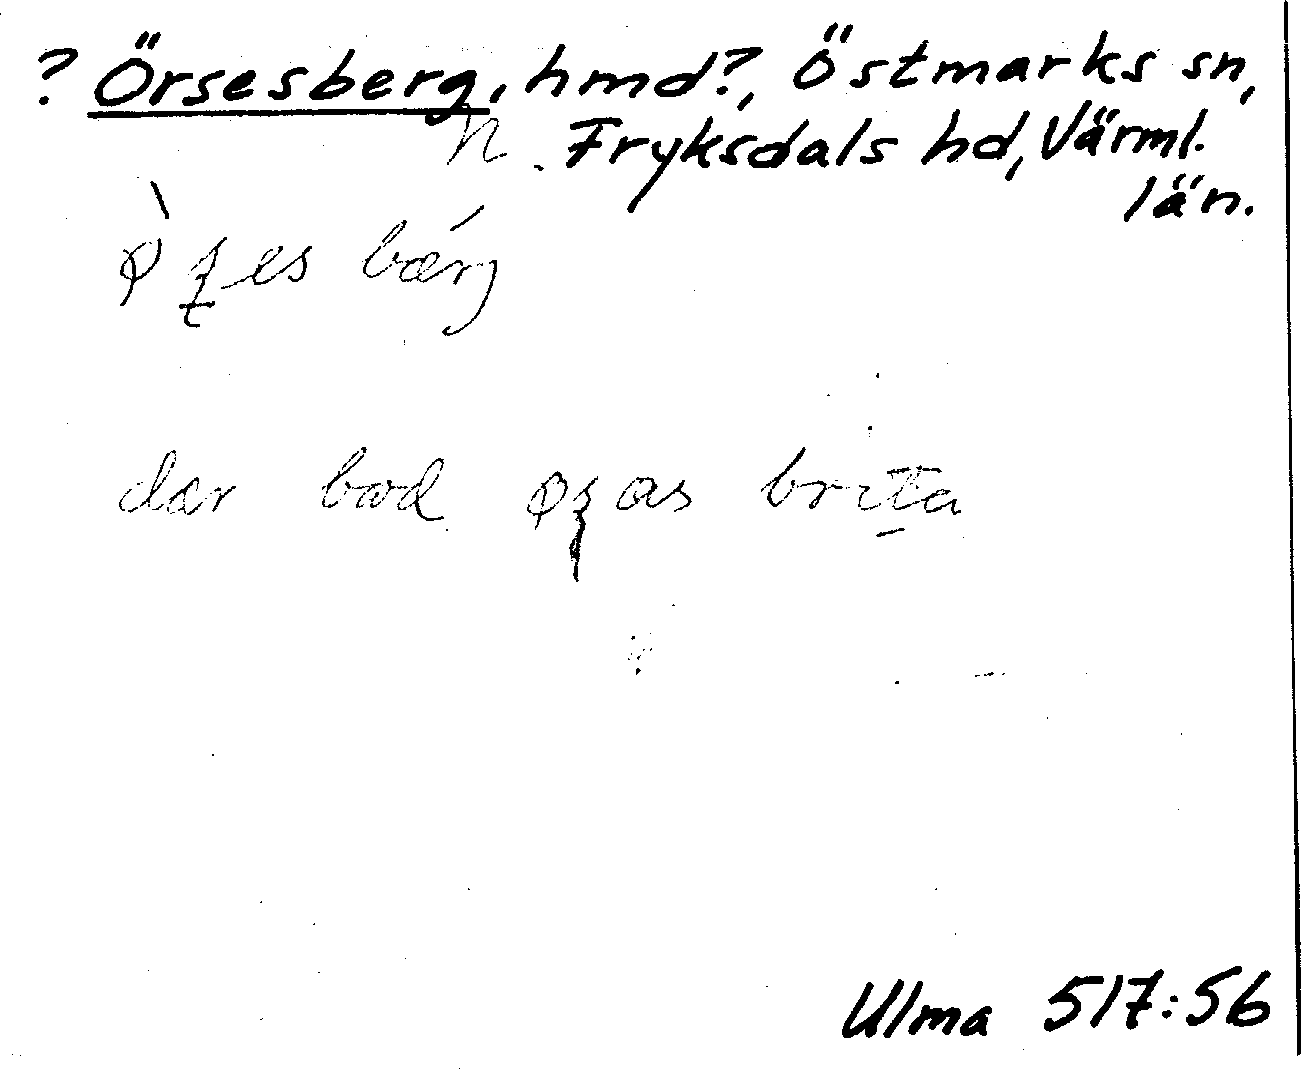 ? Örsesberg, hmd?, Östmarks sn,
n. Fryksdals hd, Värml.
län.
bærj
dær bod brita
Ulma 517:56